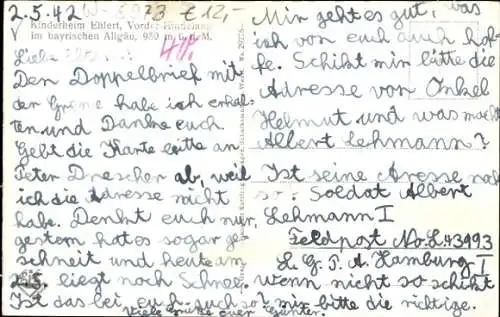 2.5.42 W-5973 € 12,-
Kinderheim Ehlert, Vorder-Hindelang
im bayrischen Allgäu, 980 m ü. d. M.
40.
Liebe Eltern!
Den Doppelbrief mit
der Greme habe ich erhal-
ten und Danke euch
Gebt die Karte bitte an
Peter Drescher ab, weil
ich die Adresse nicht
habe. Denkt euch nur,
gestern hat es sogar ge-
schneit und heute am
2.5. liegt noch Schnee.
Ist das bei euch auch so?
Mir geht es gut, was
ich von euch auch hof-
fe. Schikt mir bitte die
Adresse von Onkel
Helmut und was macht
Albert Lehmann?
Ist seine Aresse noch
so: Soldat Albert
Lehmann I
Feldpost No. L.43493
L. G. P. A. Hamburg I
wenn nicht so schikt
mir bitte die richtige.
Viele Grüße euer Günter.